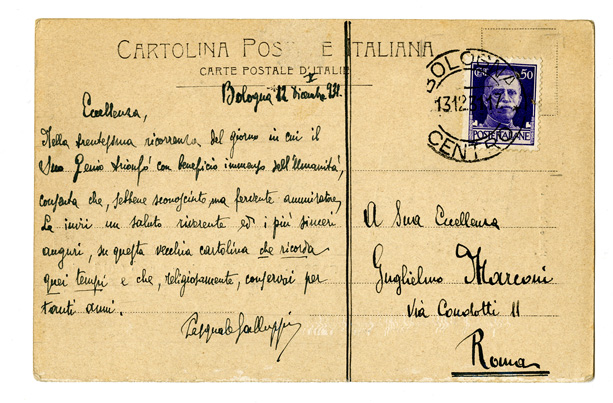 CARTOLINA POSTALE ITALIANA
CARTE POSTALE D'ITALIE
Bologna 12 Dicembre 931.
X
Eccellenza,
Nella trentessima ricorrenza del giorno in cui il
Suo Genio trionfò con beneficio immenso dell'Umanità,
consenta che, sebbene sconosciuto ma fervente ammiratore,
Le invii un saluto riverente ed i più sinceri
auguri, su questa vecchia cartolina che ricorda
quei tempi e che, religiosamente, conservai per
tanti anni.
Pasquale Galluppi
BOLOGNA
13.12.31
CENTRO
CENT. 50
POSTE ITALIANE
A Sua Eccellenza
Guglielmo Marconi
Via Condotti 11
Roma